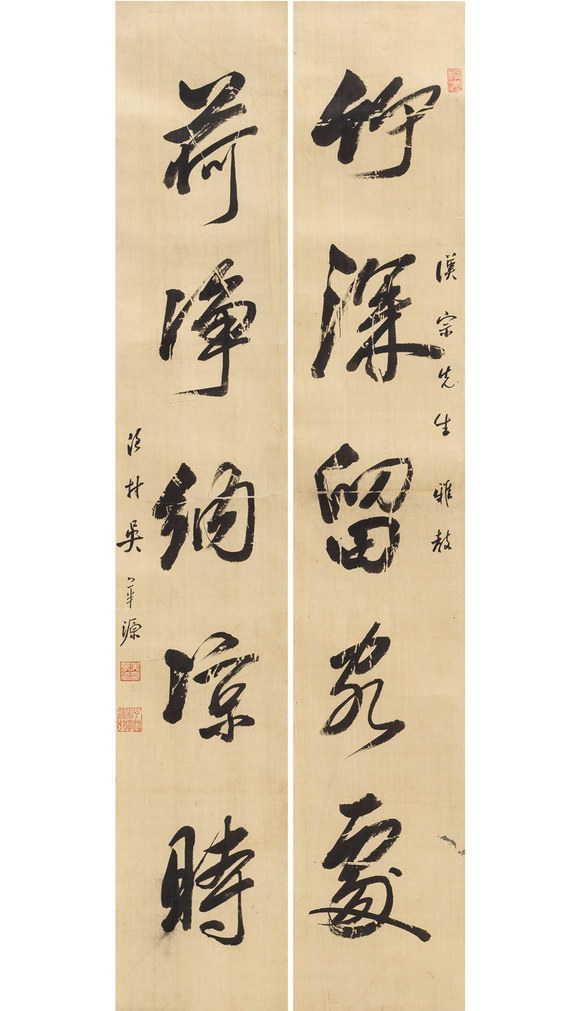 漢宗先生雅教
竹深留客處
荷淨納涼時
吳華源